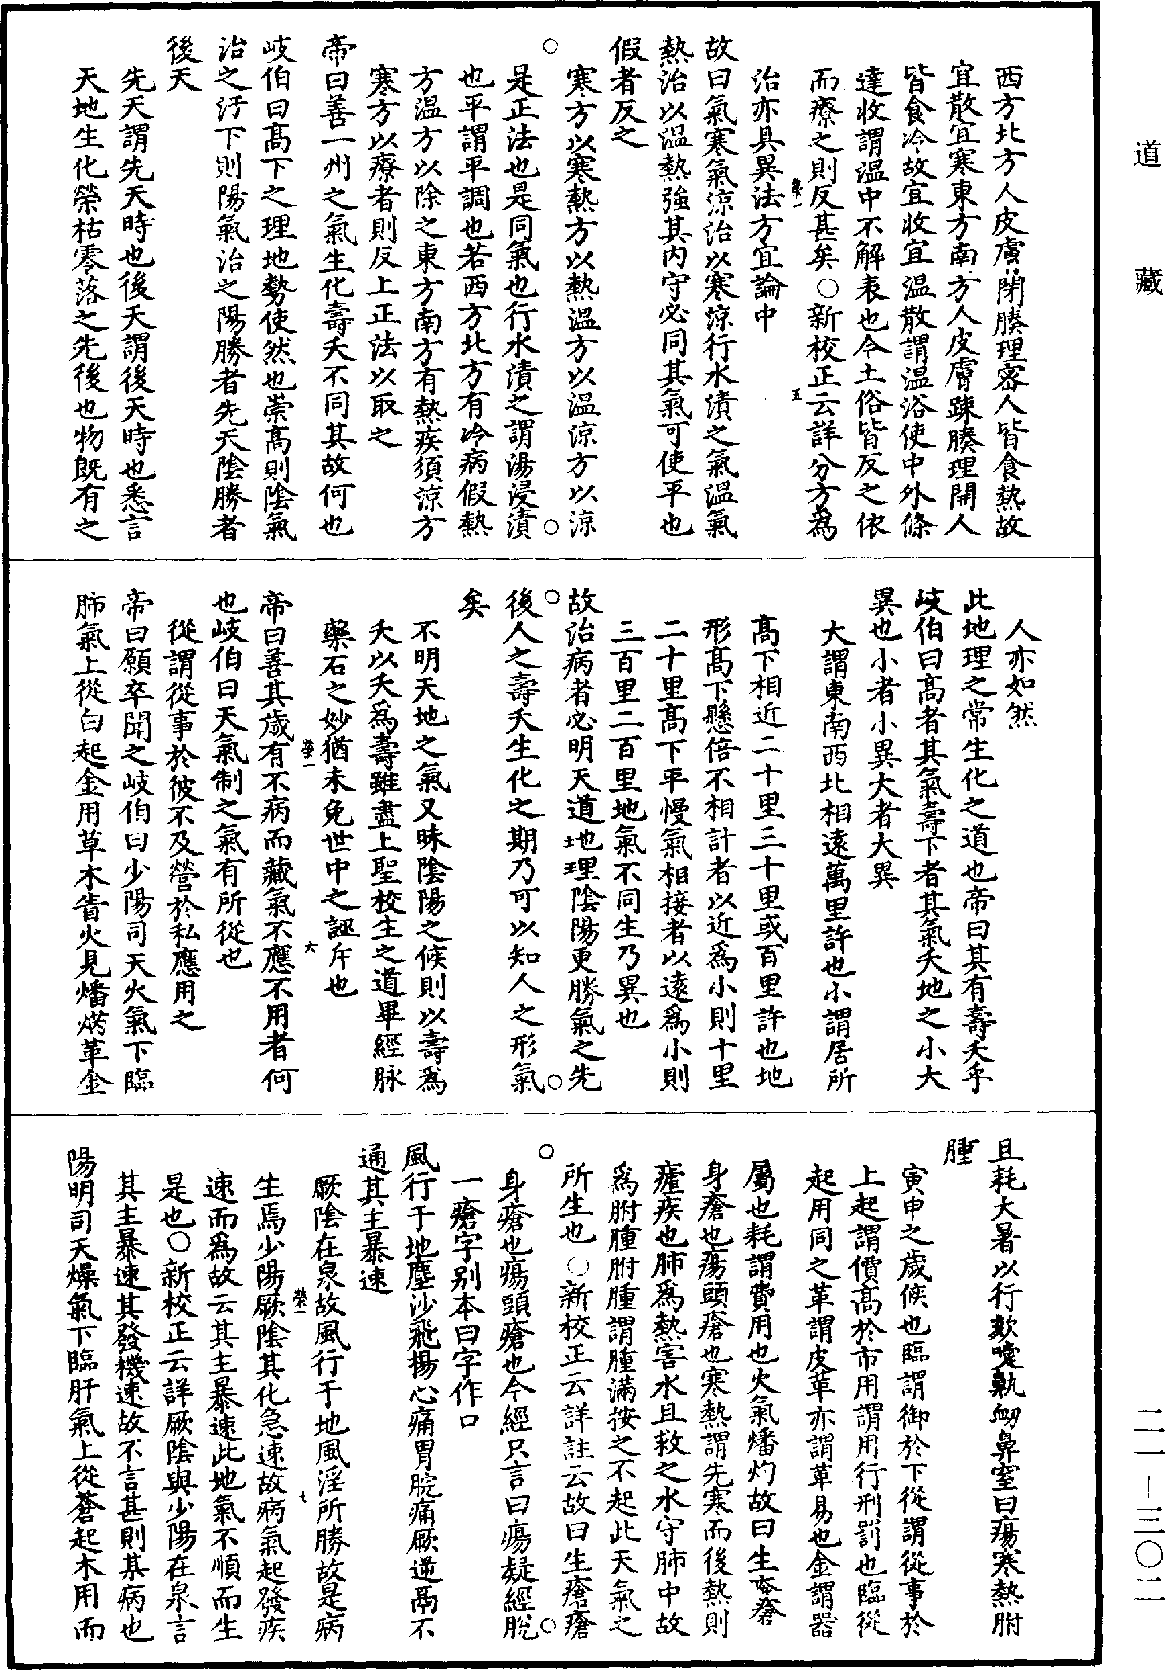 道藏
西方北方人皮膚閉腠理密人皆食熱故
宜散宜寒東方南方人皮膚踈腠理開人
皆食冷故宜收宜溫散謂溫浴使中外條
達收謂溫中不解表也今土俗皆反之依
而療之則反甚矣○新校正云詳分方爲
治亦具異法方宜論中
故曰氣寒氣涼治以寒涼行水漬之氣溫氣
熱治以溫熱強其內守必同其氣可使平也
假者反之
寒方以寒熱方以熱溫方以溫涼方以涼
是正法也是同氣也行水漬之謂湯浸漬
也平謂平調也若西方北方有冷病假熱
方溫方以除之東方南方有熱疾須涼方
寒方以療者則反上正法以取之
帝曰善一州之氣生化壽夭不同其故何也
岐伯曰高下之理地勢使然也崇高則陰氣
治之汙下則陽氣治之陽勝者先天陰勝者
後天
先天謂先天時也後天謂後天時也悉言
天地生化榮枯零落之先後也物既有之
人亦如然
此地理之常生化之道也帝曰其有壽夭乎
岐伯曰高者其氣壽下者其氣夭地之小大
異也小者小異大者大異
大謂東南西北相遠萬里許也小謂居所
高下相近二十里三十里或百里許也地
形高下懸倍不相計者以近爲小則十里
二十里高下平慢氣相接者以遠爲小則
三百里二百里地氣不同生乃異也
故治病者必明天道地理陰陽更勝氣之先
後人之壽夭生化之期乃可以知人之形氣
矣
不明天地之氣又昧陰陽之候則以壽爲
夭以夭爲壽雖盡上聖校生之道畢經脉
藥石之妙猶未免世中之誣斥也
帝曰善其歲有不病而藏氣不應不用者何
也岐伯曰天氣制之氣有所從也
從謂從事於彼不及營於私應用之
帝曰願卒聞之岐伯曰少陽司天火氣下臨
肺氣上從白起金用草木眚火見燔焫革金
且耗大暑以行欬嚏鼽衂鼻窒曰瘍寒熱胕
腫
寅申之歲候也臨謂御於下從謂從事於
上起謂價高於市用謂用行刑罰也臨從
起用同之革謂皮革亦謂革易也金謂器
屬也耗謂費用也火氣燔灼故曰生瘡瘡
身瘡也瘍頭瘡也寒熱謂先寒而後熱則
瘧疾也肺爲熱害水且救之水守肺中故
爲胕腫胕腫謂腫滿按之不起此天氣之
所生也○新校正云詳註云故曰生瘡瘡
身瘡也瘍頭瘡也今經只言曰瘍疑經脫
一瘡字別本曰字作口
風行于地塵沙飛揚心痛胃脘痛厥逆鬲不
通其主暴速
厥陰在泉故風行于地風淫所勝故是病
生焉少陽厥陰其化急速故病氣起發疾
速而爲故云其主暴速此地氣不順而生
是也○新校正云詳厥陰與少陽在泉言
其主暴速其發機速故不言甚則某病也
陽明司天燥氣下臨肝氣上從蒼起木用而
二一—三〇二